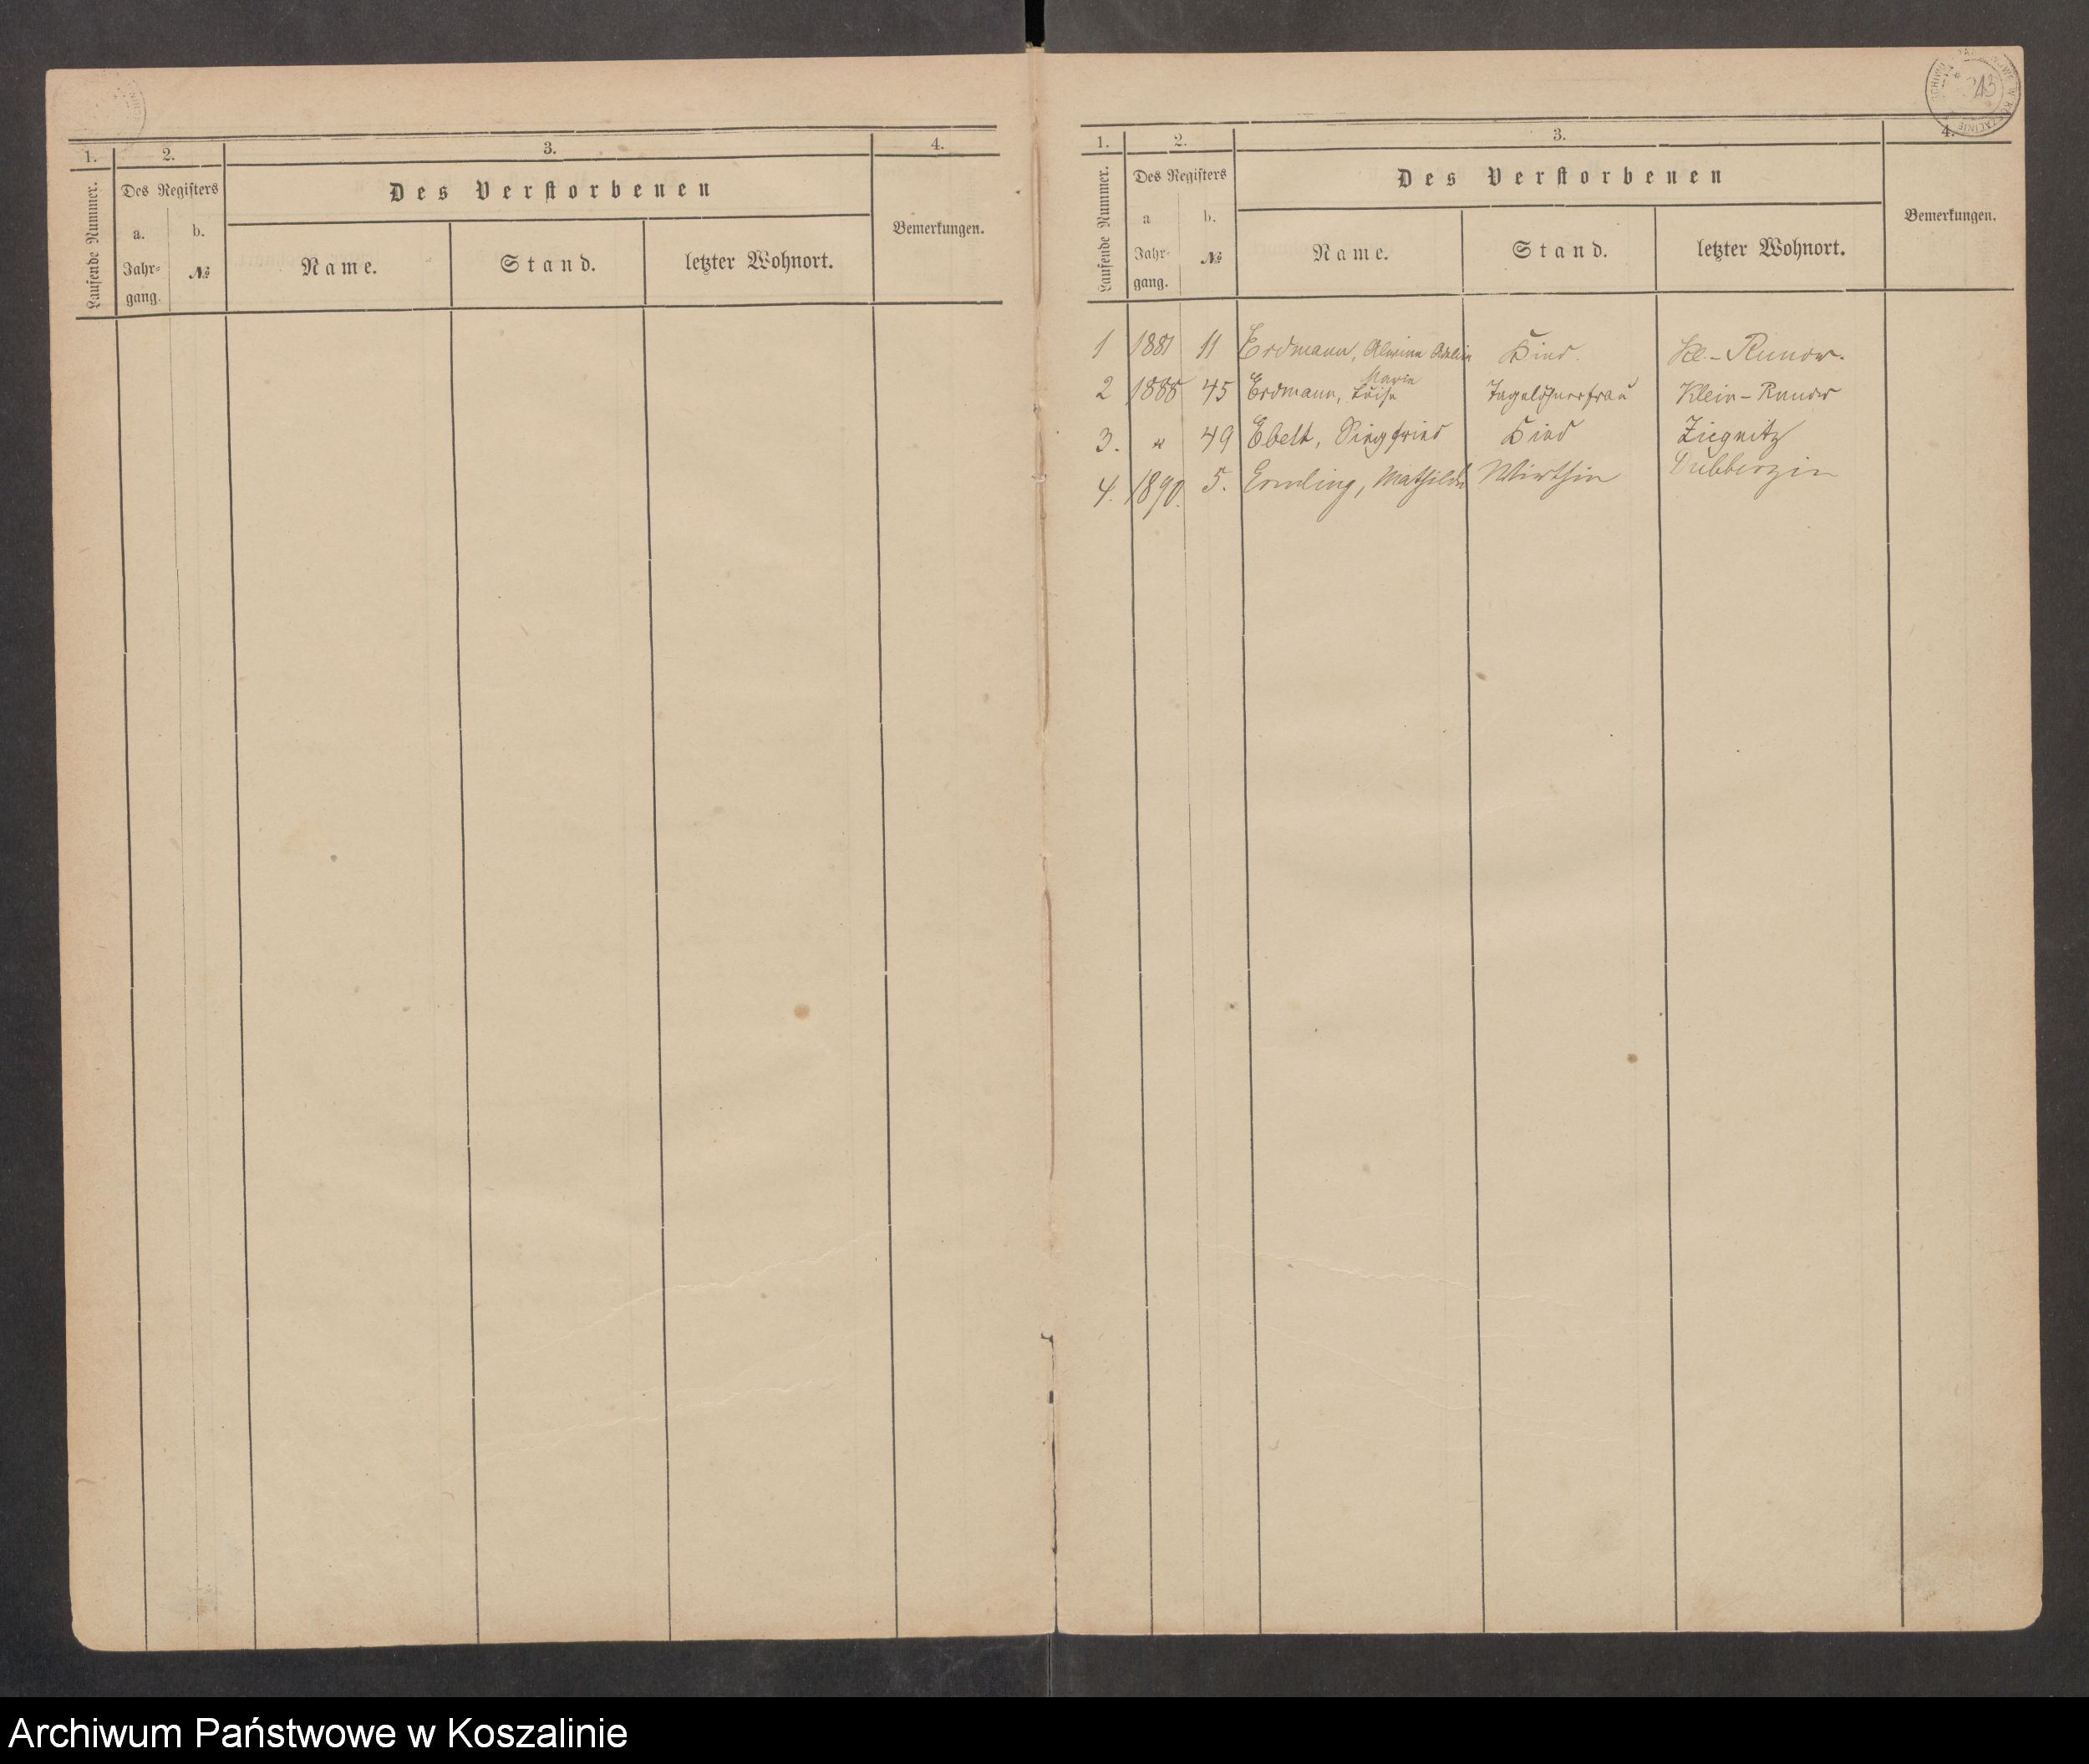 1. 2. 3. 4.
Laufende Nummer. Des Registers Des Verstorbenen Bemerkungen.
a. b.
Jahr- № Name. Stand. letzter Wohnort.
gang.
313
1. 2. 3. 4.
Laufende Nummer. Des Registers Des Verstorbenen Bemerkungen.
a b.
Jahr- № Name. Stand. letzter Wohnort.
gang.
1 1881 11 Erdmann, Alwine Kind. Kl.-Runow.
Marie
2 1888 45 Erdmann, Luise Tagelöhnerfrau Klein-Runow
3. " 49 Ebelt, Siegfried Kind Ziegnitz
4. 1890. 5. Ermling, Mathilde Wirthin Dubberzin
Archiwum Państwowe w Koszalinie